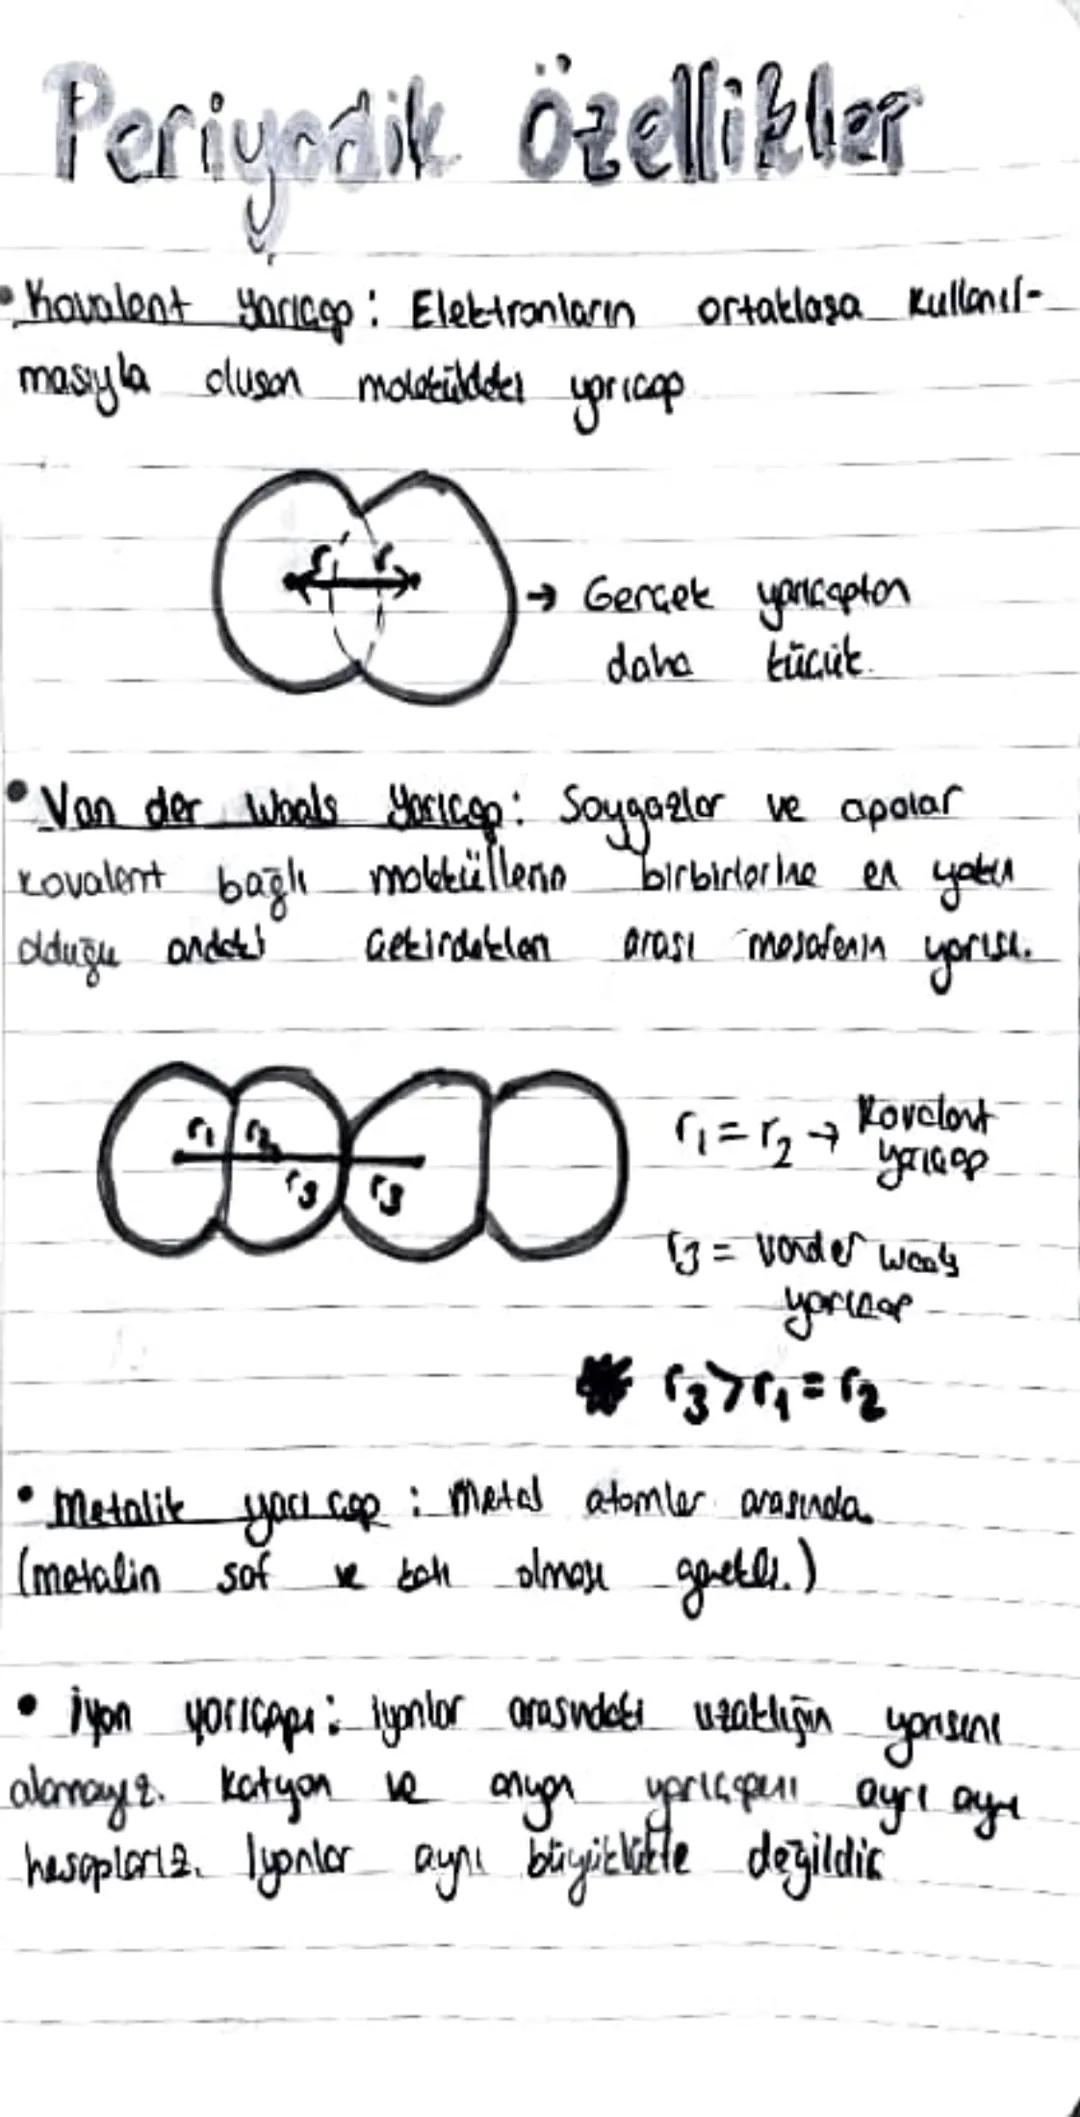 Periyodik Özellikler
• Kovalent yarıçap: Elektronların ortaklaşa kullanıl-
masıyla oluşan moleküldeki yarıçap
r r
→ Gerçek yarıçaptan
daha küçük.
• Van der Waals Yarıçap: Soygazlar ve apolar
kovalent bağlı moleküllerin birbirlerine en yakın
olduğu andaki çekirdekleri arası mesafenin yarısı.
r1 r2
r3 r3
r1 = r2 → Kovalent
yarıçap
r3 = Vander Waals
yarıçap
* r3 > r1 = r2
• Metalik yarıçap: Metal atomlar arasında.
(metalin saf ve katı olması gerekli.)
• İyon yarıçapı: iyonlar arasındaki uzaklığın yarısını
alamayız. Katyon ve anyon yarıçapını ayrı ayrı
hesaplarız. İyonlar aynı büyüklükte değildir